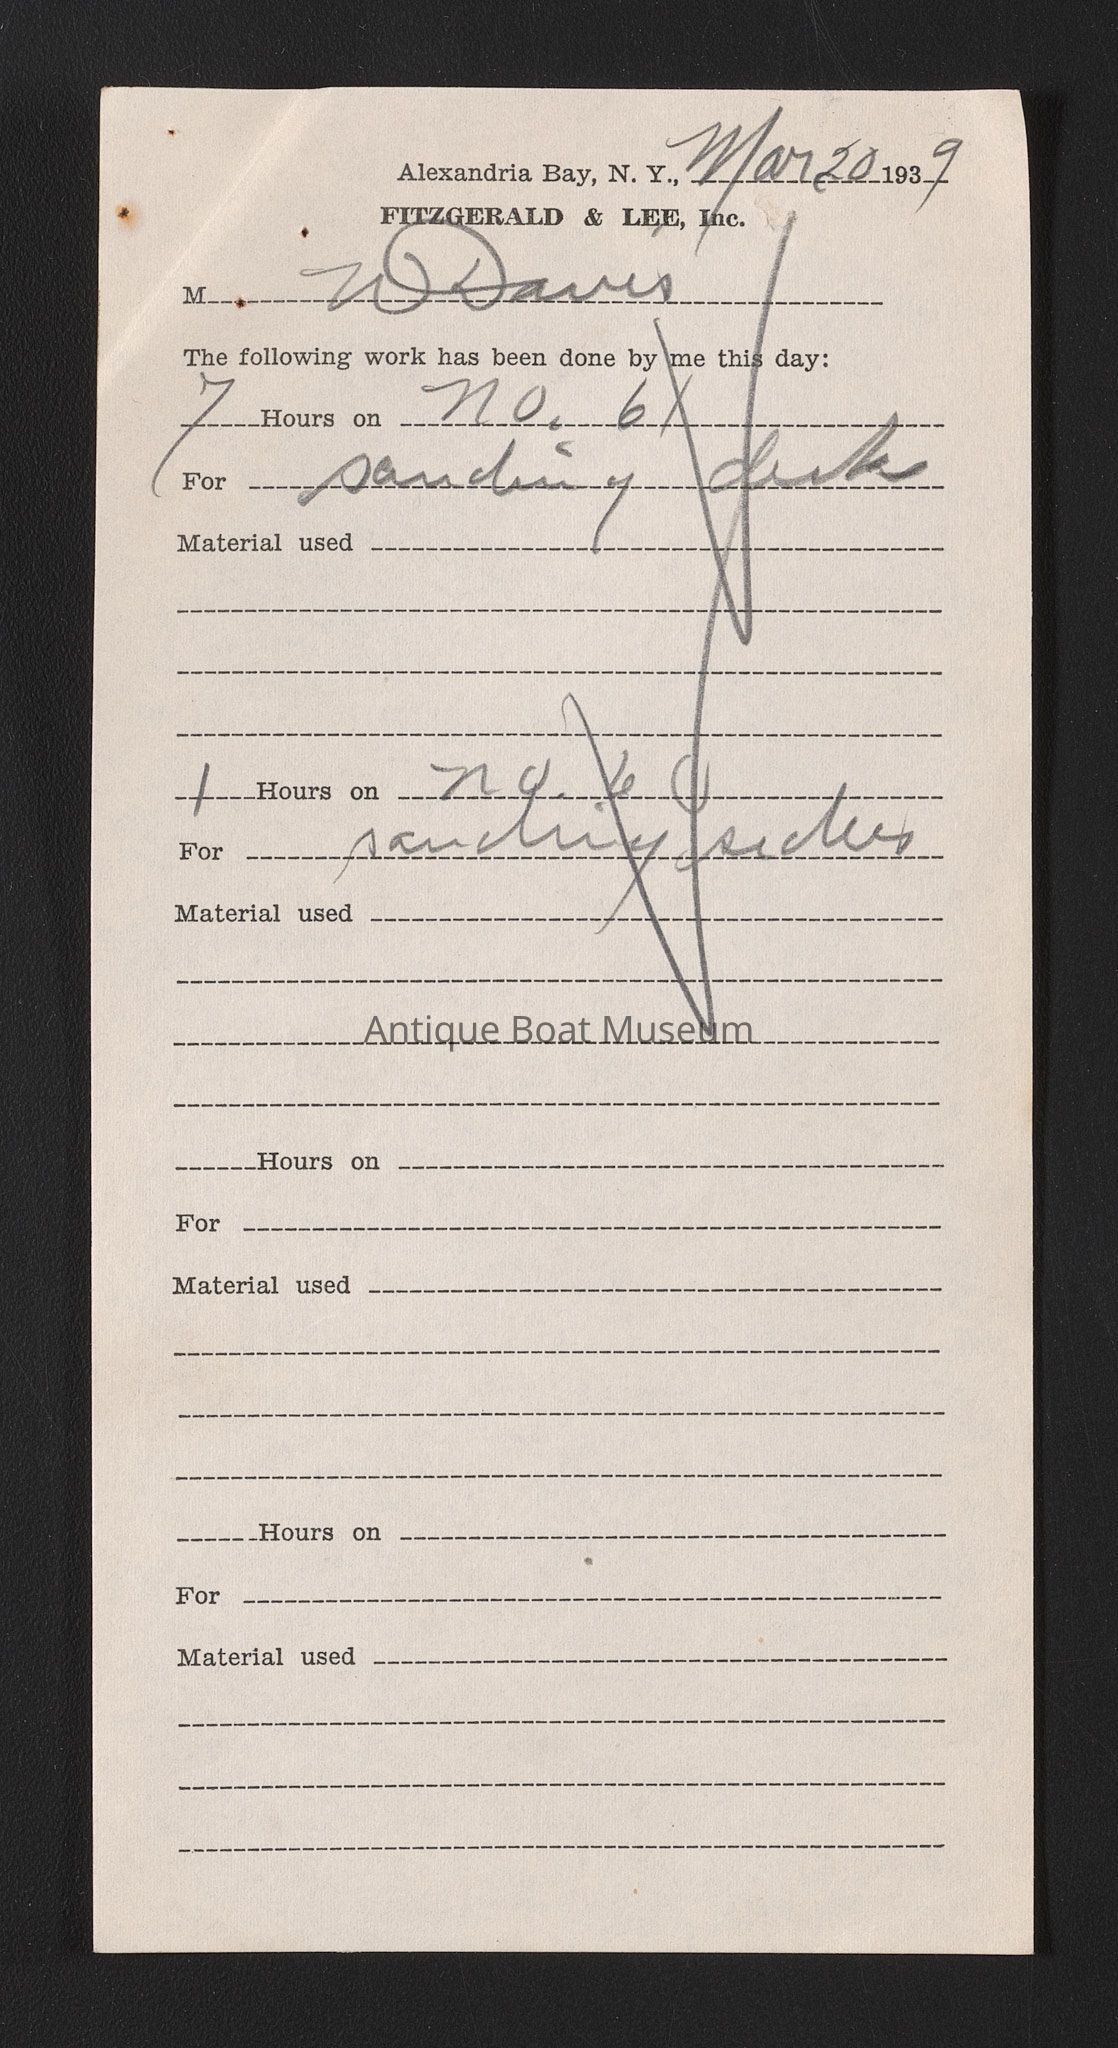 Alexandria Bay, N. Y., Mar 20 1939
FITZGERALD & LEE, Inc.
M W Davis
The following work has been done by me this day:
7 Hours on No. 61
For sanding deck
Material used
1 Hours on no. 60
For sanding sides
Material used
Antique Boat Museum
Hours on
For
Material used
Hours on
For
Material used